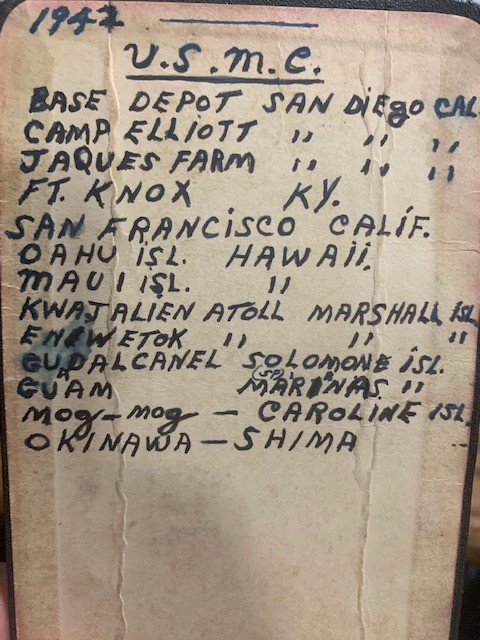 1942
U.S.M.C.
BASE DEPOT SAN DiEgo CAL.
CAMP ELLiOTT " " "
JAQUES FARM " " "
FT. KNOX KY.
SAN FRANCiSCO CALiF.
OAHU iSL. HAWAii.
MAUI iSL. "
KWAJALIEN ATOLL MARSHALL iSL
ENiWETOK " " "
GUADALCANEL SOLOMONE iSL.
GUAM (SP) MARINAS. "
Mog-mog - CAROLINE iSL.
OKINAWA - SHIMA